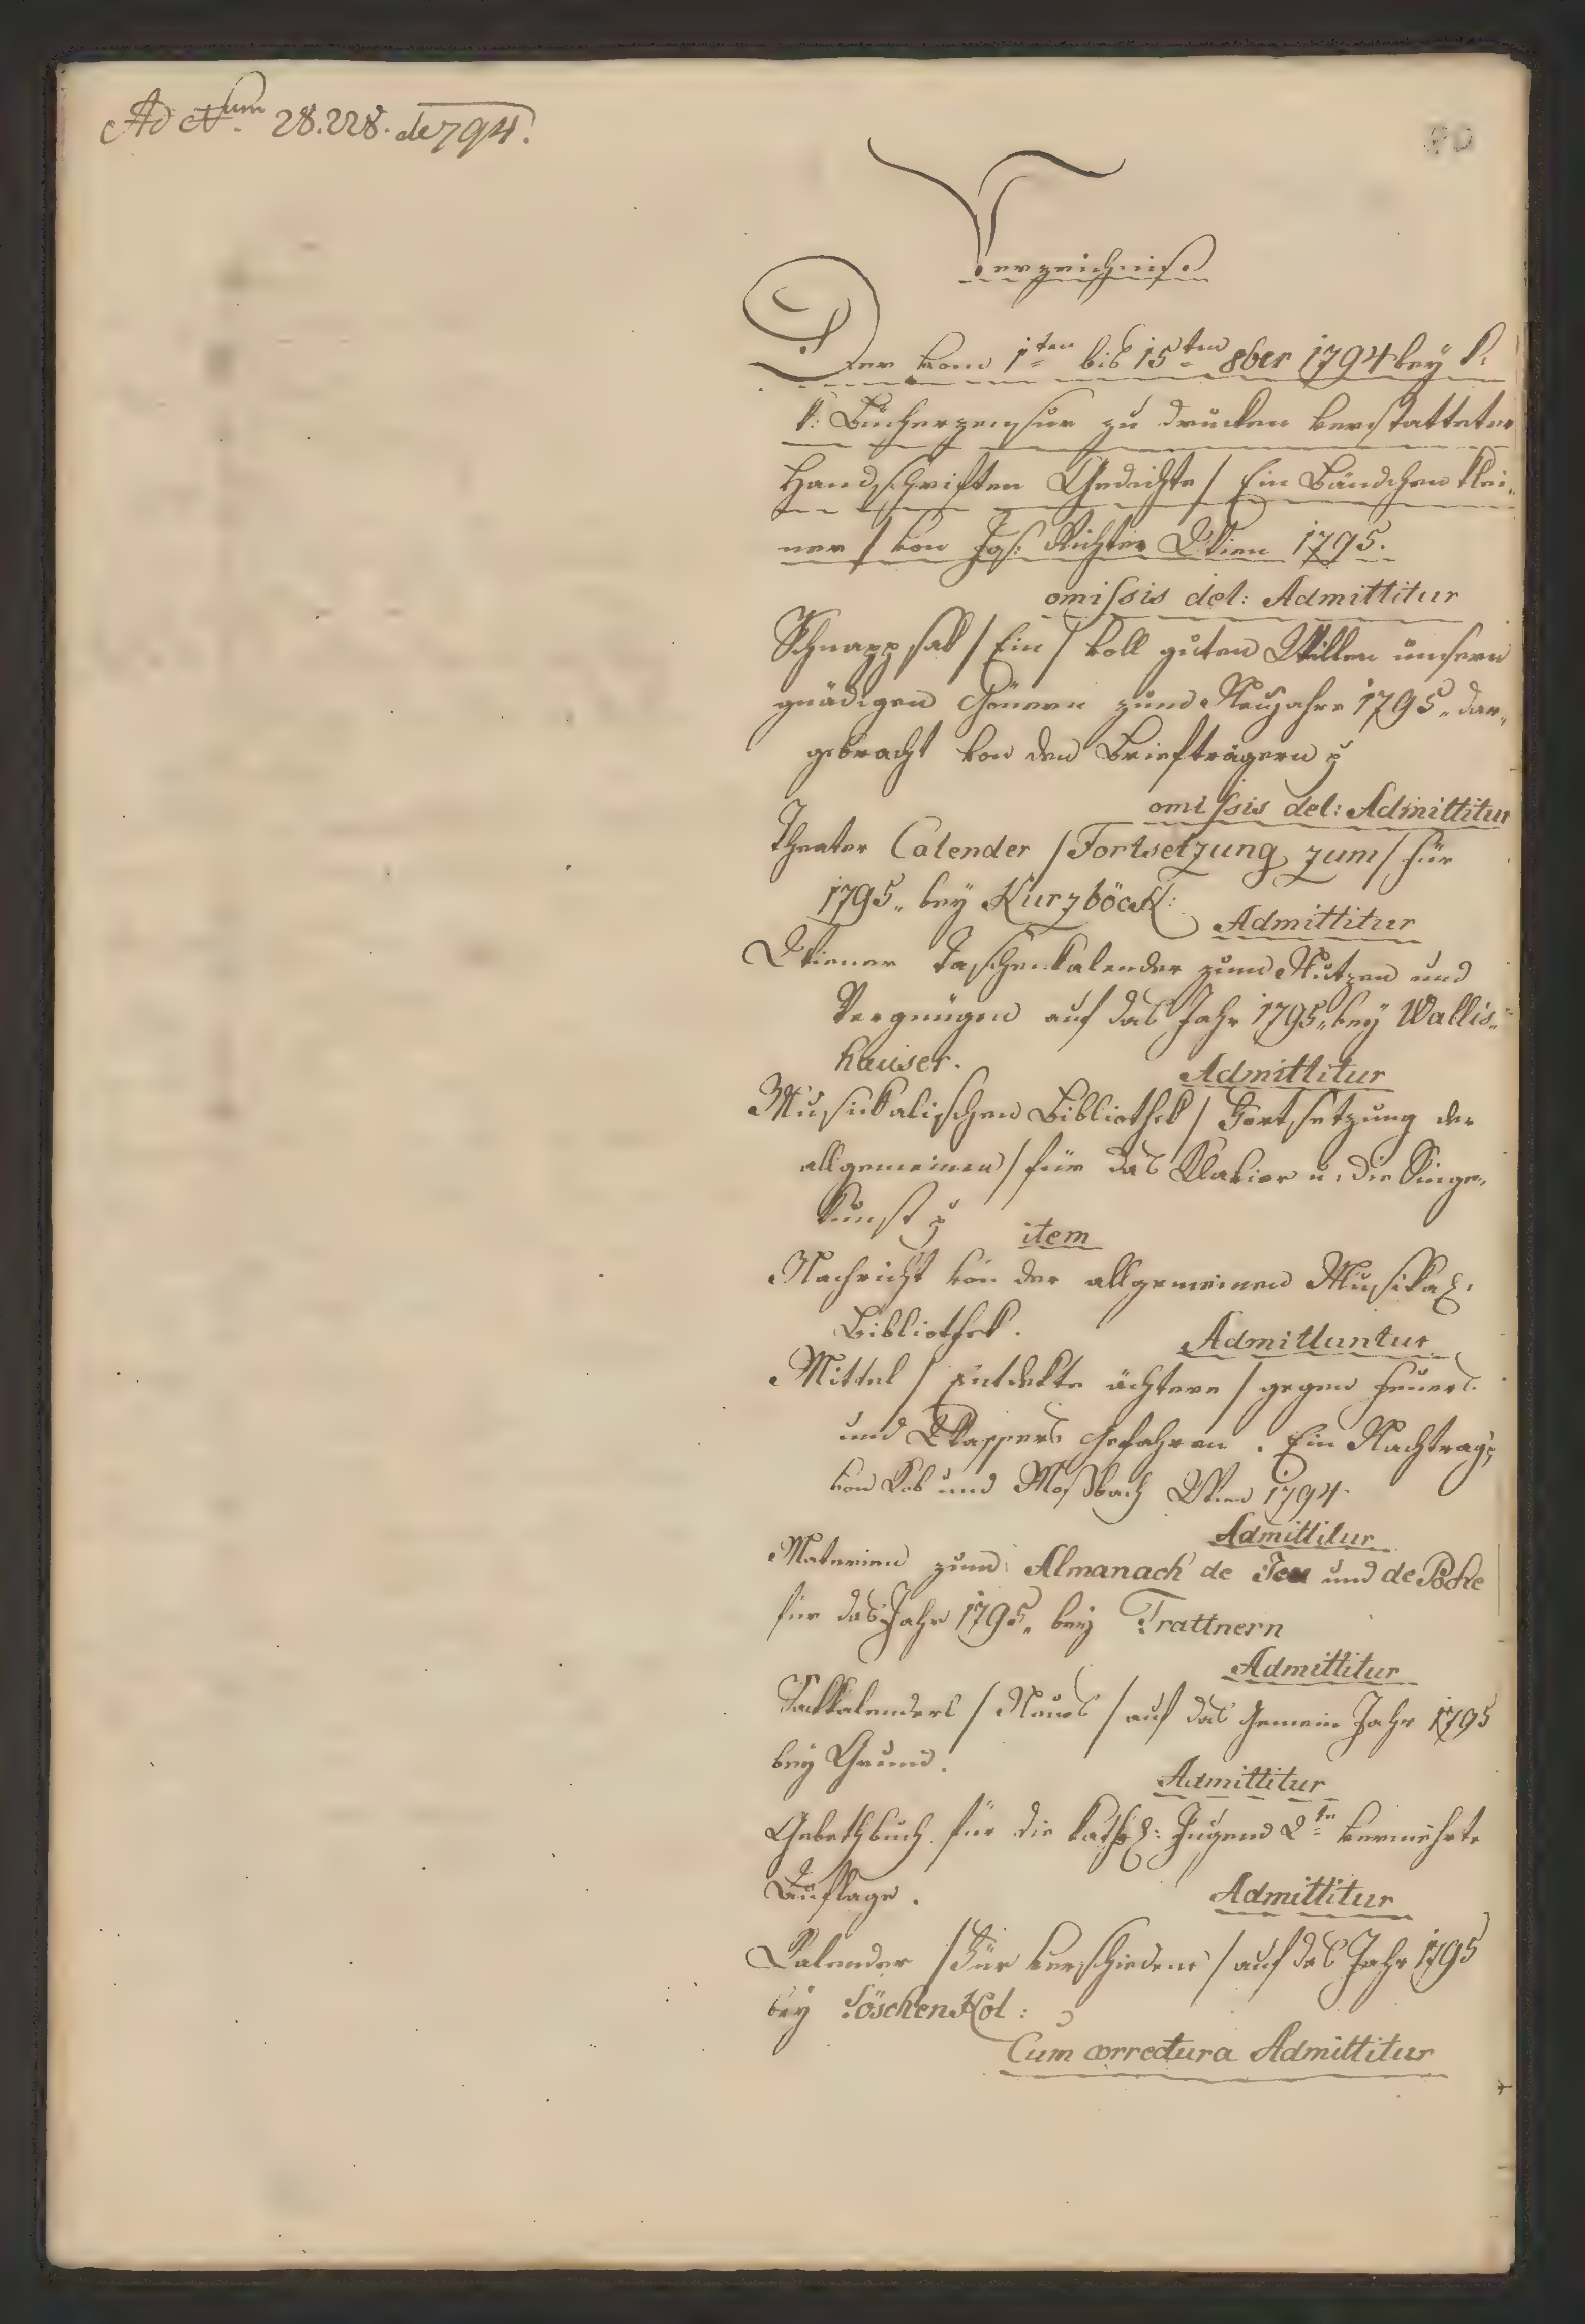 Ad Num 28.228. de 794.
80
Verzeichniß
Der vom 1ten bis 15ten 8ber 1794 bey k.
k: Bücherzensur zu drucken verstatteten
Handschriften Gedichte / Ein Bändchen klei-
ner / von Jos: Richter Wien 1795.
omissis del: Admittitur
Schnappsak / Ein / voll guten Willen unsern
gnädigen Gönern zum Neujahre 1795 dar-
gebracht von den Briefträgern
omissis del: Admittitur
Theater Calender / Fortsetzung zum / für
1795 bey Kurzböck:
Admittitur
Wiener Taschenkalender zum Nutzen und
Vergnügen auf das Jahr 1795 bey Wallis-
hauser.
Admittitur
Musickalischen Bibliothek / Fortsetzung der
allgemeinen / für das Klavier u. die Singe-
kunst
item
Nachricht von der allgemeinen Musikal.
Bibliothek.
Admittuntur
Mittel / Entdekte ächtere / gegen Feuers
und Wassers Gefahren. Ein Nachtrag
von und Wien 1794
Admittitur
Materien zum Almanach de Jeu und de Poche
für das Jahr 1795 bey Trattnern
Admittitur
Sackkalenders / Neues / auf das Gemein Jahr 1795
bey Grund.
Admittitur
Gebethbuch für die kathol: Jugend 2te vermehrte
Auflage.
Admittitur
Kalender / Für verschiedene / auf das Jahr 1795
bey LöschenKol:
Cum correctura Admittitur